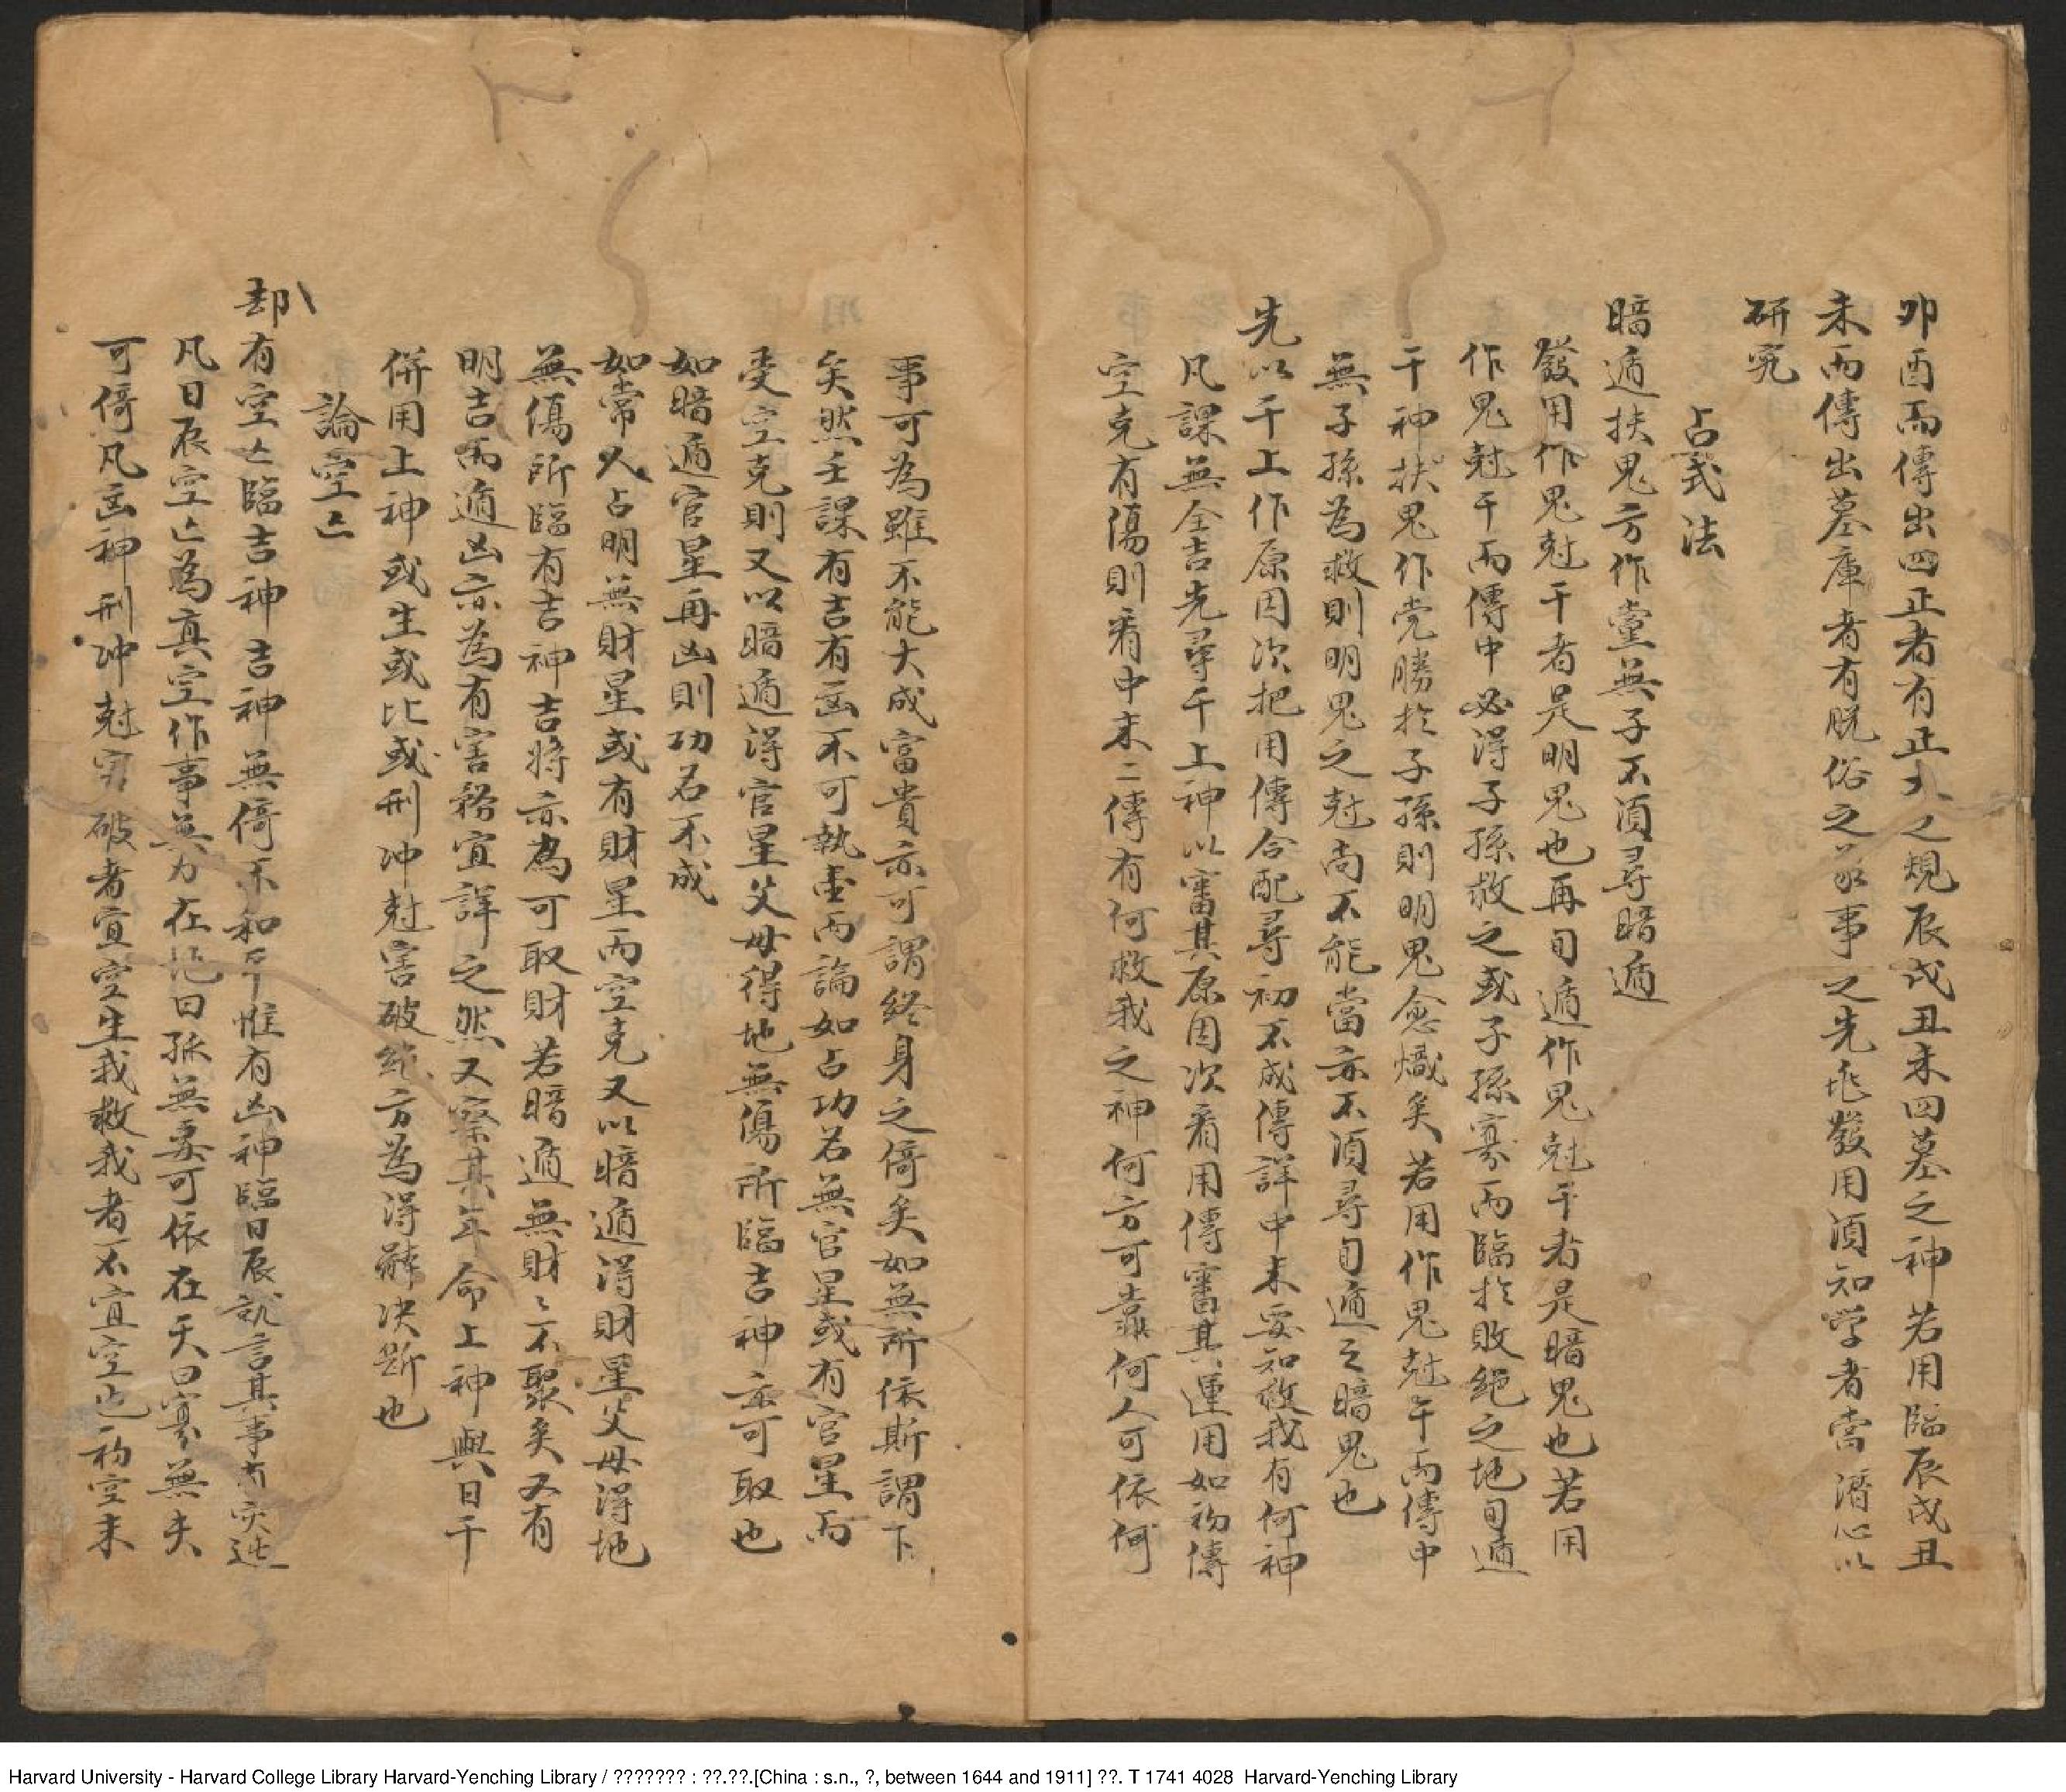 卯酉而傳出四正者有止大之規辰戌丑未四墓之神若用臨辰戌丑
未而傳出墓庫者有脫俗之事之先兆發用須知学者當潛心以
研究
占式法
暗遁扶鬼方作黨無子不須尋暗遁
發用作鬼尅干者是明鬼也再旬遁作鬼尅干者是暗鬼也若用
作鬼尅干而傳中必得子孫救之或子孫寡而臨於敗絕之地旬遁
干神扶鬼作党勝於子孫則明鬼愈熾矣若用作鬼尅干而傳中
無子孫為救則明鬼之尅尚不能當亦不須尋旬遁之暗鬼也
先以干上作原因次把用傳合配尋初不成傳詳中末要知救我有何神
凡課無全吉先尋干上神以審其原因次看用傳審其運用如初傳
空克有傷則看中末二傳有何救我之神何方可靠何人可依何
事可為雖不能大成富貴亦可謂終身之倚矣如無所依斯謂下
矣然壬課有吉有凶不可執壹而論如占功名無官星或有官星而
受空克則又以暗遁得官星父母得地無傷所臨吉神亦可取也
如暗遁官星再凶則功名不成
如常人占明無財星或有財星而空克又以暗遁得財星父母得地
無傷所臨有吉神吉將亦為可取財若暗遁無財〻不聚矣又有
明吉而遁凶亦為有害務宜詳之然又察其年命上神與日干
併用上神或生或比或刑冲尅害破絕方為得辭决斷也
論空亡
却有空亡臨吉神吉神無倚不和平惟有凶神臨日辰就言其事有災迍
凡日辰空亡為真空作事無力在地曰孤無妻可依在天曰寡無夫
可倚凡凶神刑冲尅害破者宜空生我救我者不宜空也初空末
Harvard University - Harvard College Library Harvard-Yenching Library / ??????? : ??.??.[China : s.n., ?, between 1644 and 1911] ??. T 1741 4028 Harvard-Yenching Library